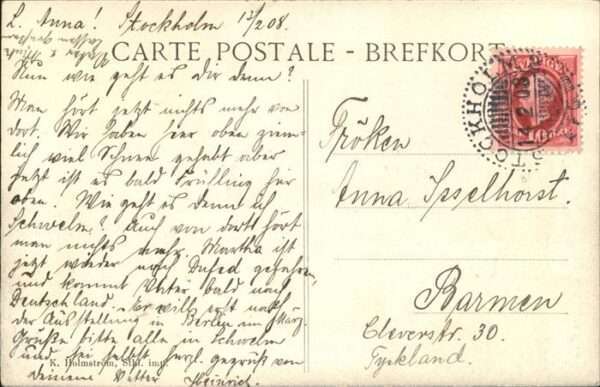 L. Anna! Stockholm 13/2 08.
CARTE POSTALE - BREFKORT
Nun wie geht es Dir denn?
Man hört jetzt nichts mehr von
dort. Wir haben hier oben ziem-
lich viel Schnee gehabt aber
jetzt ist es bald Frühling hier
oben! Wie geht es denn in
Schwelm? Auch von dort hört
man nichts mehr. Martha ist
jetzt wieder nach gefahren,
und kommt Vater bald nach
Deutschland. Er will erst nach
der Ausstellung in Berlin am März.
Grüße bitte alle in Schwelm
und sei selbst herzl. gegrüßt von
Deinem Vetter Heinrich.
K. Holmström, Sthl. imp.
STOCKHOLM
14 2 08
10
Fröken
Anna Isselhorst.
Barmen
Cleverstr. 30.
Tyskland.